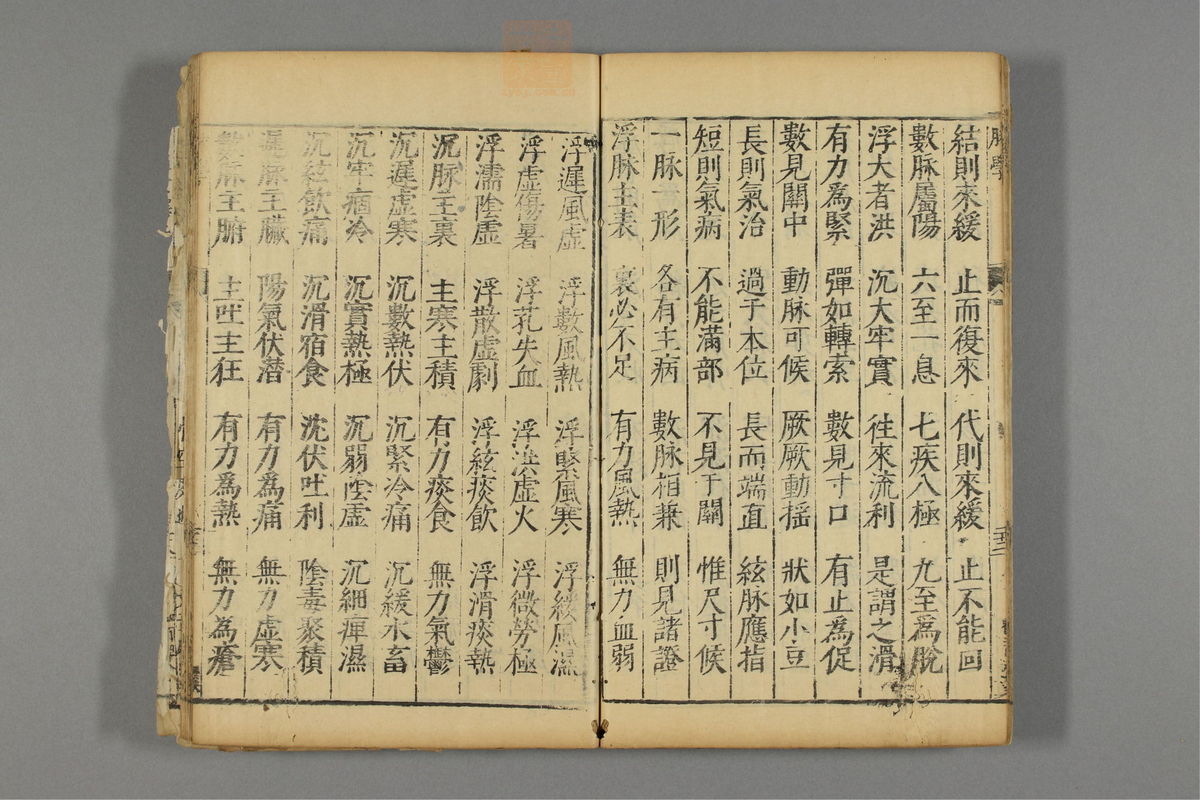 結則來緩 止而復來 代則來緩 止不能回
數脉屬陽 六至一息 七疾八極 九至為脫
浮大者洪 沉大牢實 往來流利 是謂之滑
有力為緊 彈如轉索 數見寸口 有止為促
數見關中 動脉可候 厥厥動揺 狀如小豆
長則氣治 過于本位 長而端直 絃脉應指
短則氣病 不能滿部 不見于關 惟尺寸候
一脉一形 各有主病 數脉相兼 則見諸證
浮脉主表 裏必不足 有力風熱 無力血弱
浮遲風虛 浮數風熱 浮緊風寒 浮緩風濕
浮虛傷暑 浮芤失血 浮洪虛火 浮微勞極
浮濡陰虛 浮散虛劇 浮絃痰飲 浮滑痰熱
沉脉主裏 主寒主積 有力痰食 無力氣鬱
沉遲虛寒 沉數熱伏 沉緊冷痛 沉緩水畜
沉牢痼冷 沉實熱極 沉弱陰虛 沉細痺濕
沉絃飲痛 沉滑宿食 沈伏吐利 陰毒聚積
遲脉主臟 陽氣伏潜 有力為痛 無力虛寒
數脉主腑 主吐主狂 有力為熱 無力為瘡